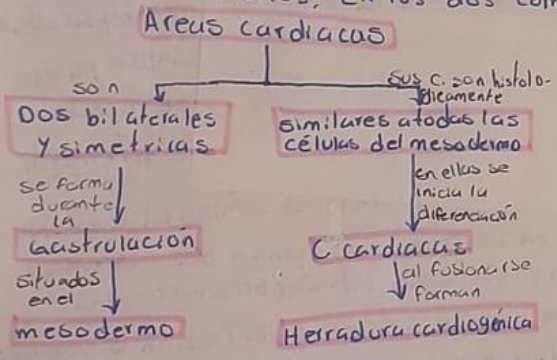 Areas cardiacas
son
Dos bilaterales
y simetricas
se forma
durante
la
Gastrulación
situados
en el
mesodermo
sus c. son histolo-
gicamente
similares a todas las
células del mesodermo
en ellas se
inicia la
diferenciación
C cardiacas
al fusionarse
forman
Herradura cardiogénica